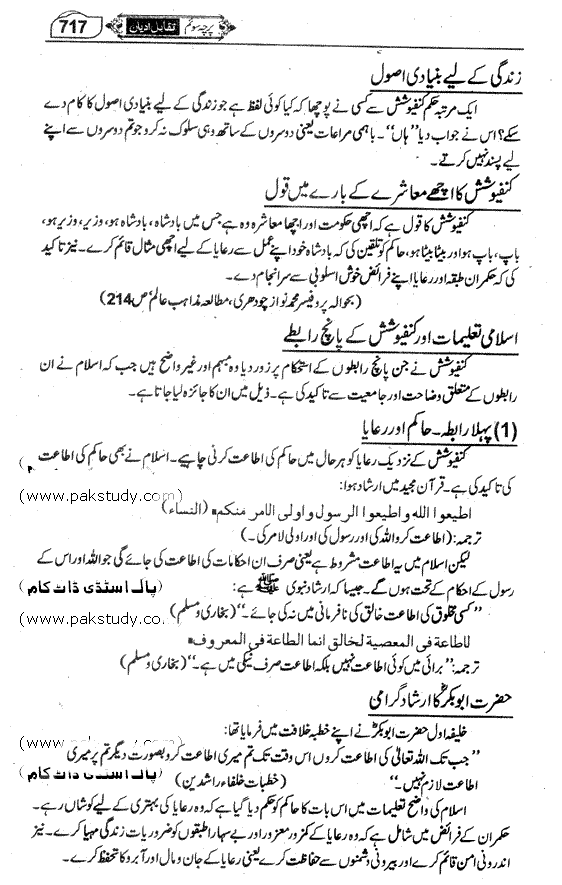 717 تقابل ادیان پرچہ سوئم
زندگی کے لیے بنیادی اصول
ایک مرتبہ حکم کنفیوشش سے کسی نے پوچھا کہ کیا کوئی لفظ ہے جو زندگی کے لیے بنیادی اصول کا کام دے
سکے؟ اس نے جواب دیا "ہاں"۔ باہمی مراعات یعنی دوسروں کے ساتھ وہی سلوک نہ کرو جو تم دوسروں سے اپنے
لیے پسند نہیں کرتے۔
کنفیوشش کا اچھے معاشرے کے بارے میں قول
کنفیوشش کا قول ہے کہ اچھی حکومت اور اچھا معاشرہ وہ ہے جس میں بادشاہ، بادشاہ ہو، وزیر، وزیر ہو،
باپ، باپ ہو اور بیٹا بیٹا ہو، حاکم کو تلقین کی کہ بادشاہ خود اپنے عمل سے رعایا کے لیے اچھی مثال قائم کرے۔ نیز تاکید
کی کہ حکمران طبقہ اور رعایا اپنے فرائض خوش اسلوبی سے سرانجام دے۔
(بحوالہ پروفیسر محمد نواز چودھری، مطالعہ مذاہب عالم ص 214)
اسلامی تعلیمات اور کنفیوشش کے پانچ رابطے
کنفیوشش نے جن پانچ رابطوں کے استحکام پر زور دیا وہ مبہم اور غیر واضح ہیں جب کہ اسلام نے ان
رابطوں کے متعلق وضاحت اور جامعیت سے تاکید کی ہے۔ ذیل میں ان کا جائزہ لیا جاتا ہے۔
(1) پہلا رابطہ۔ حاکم اور رعایا
کنفیوشش کے نزدیک رعایا کو ہر حال میں حاکم کی اطاعت کرنی چاہیے۔ اسلام نے بھی حاکم کی اطاعت
کی تاکید کی ہے۔ قرآن مجید میں ارشاد ہوا:
(www.pakstudy.com)
اطیعوا اللہ واطیعوا الرسول واولی الامر منکم۔ (النساء)
ترجمہ: (اطاعت کرو اللہ کی اور رسول کی اور اولی لامر کی۔)
لیکن اسلام میں یہ اطاعت مشروط ہے یعنی صرف ان احکامات کی اطاعت کی جائے گی جو اللہ اور اس کے
رسول کے احکام کے تحت ہوں گے۔ جیسا کہ ارشاد نبوی ﷺ ہے:
(پاک اسٹڈی ڈاٹ کام)
"کسی مخلوق کی اطاعت خالق کی نافرمانی میں نہ کی جائے۔" (بخاری و مسلم)
(www.pakstudy.co
لاطاعة فی المعصیة لخالق انما الطاعة فی المعروف۔
ترجمہ: "برائی میں کوئی اطاعت نہیں بلکہ اطاعت صرف نیکی میں ہے۔" (بخاری و مسلم)
حضرت ابوبکرؓ کا ارشاد گرامی
خلیفہ اول حضرت ابوبکرؓ نے اپنے خطبہ خلافت میں فرمایا تھا:
(www.pakstudy.com)
"جب تک اللہ تعالیٰ کی اطاعت کروں اس وقت تک تم میری اطاعت کرو بصورت دیگر تم پر میری
اطاعت لازم نہیں۔" (خطبات خلفاء راشدین)
پاک اسٹڈی ڈاٹ کام
اسلام کی واضح تعلیمات میں اس بات کا حاکم کو حکم دیا گیا ہے کہ وہ رعایا کی بہتری کے لیے کوشاں رہے۔
حکمران کے فرائض میں شامل ہے کہ وہ رعایا کے کمزور معذور اور بے سہارا طبقوں کو ضروریات زندگی مہیا کرے۔ نیز
اندرونی امن قائم کرے اور بیرونی دشمنوں سے حفاظت کرے یعنی رعایا کے جان و مال اور آبرو کا تحفظ کرے۔